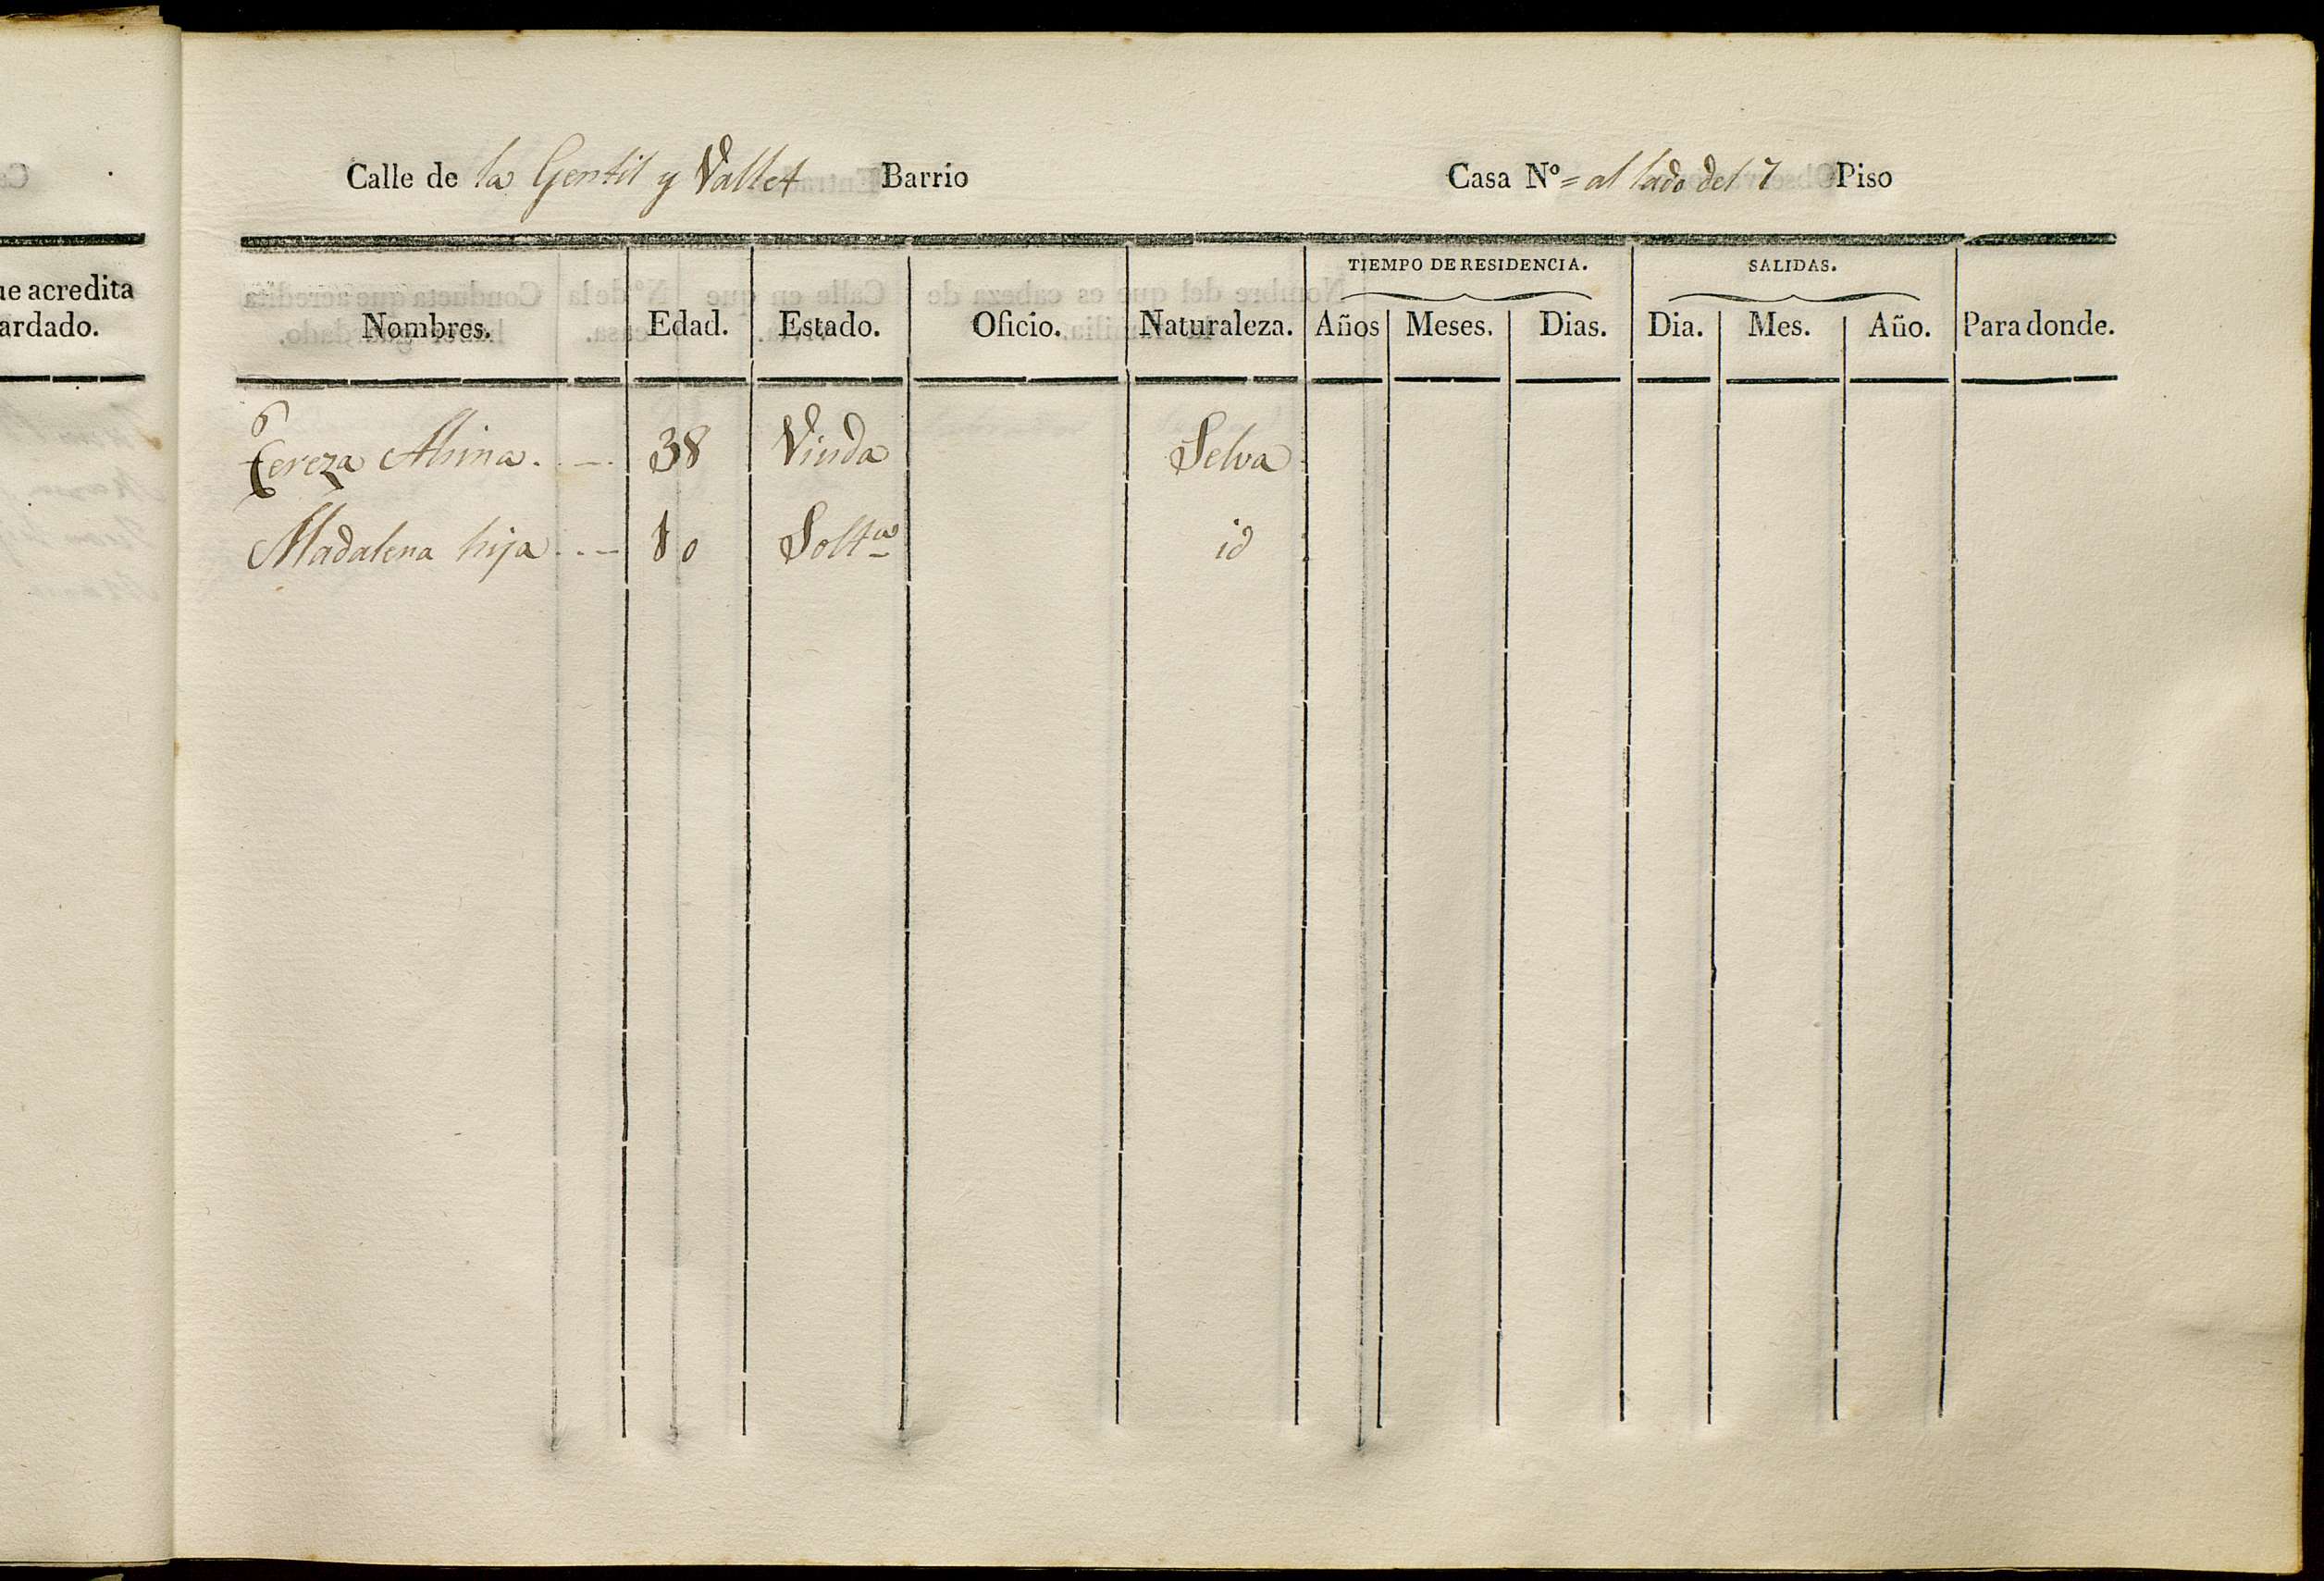 ue acredita
ardado.
Calle de la Gentil y Vallet Barrio Casa Nº = al lado del 7 Piso
TIEMPO DE RESIDENCIA. SALIDAS.
Nombres. Edad. Estado. Oficio. Naturaleza. Años Meses. Dias. Dia. Mes. Año. Para donde.
Tereza 38 Viuda Selva
Madalena hija 10 Soltª id